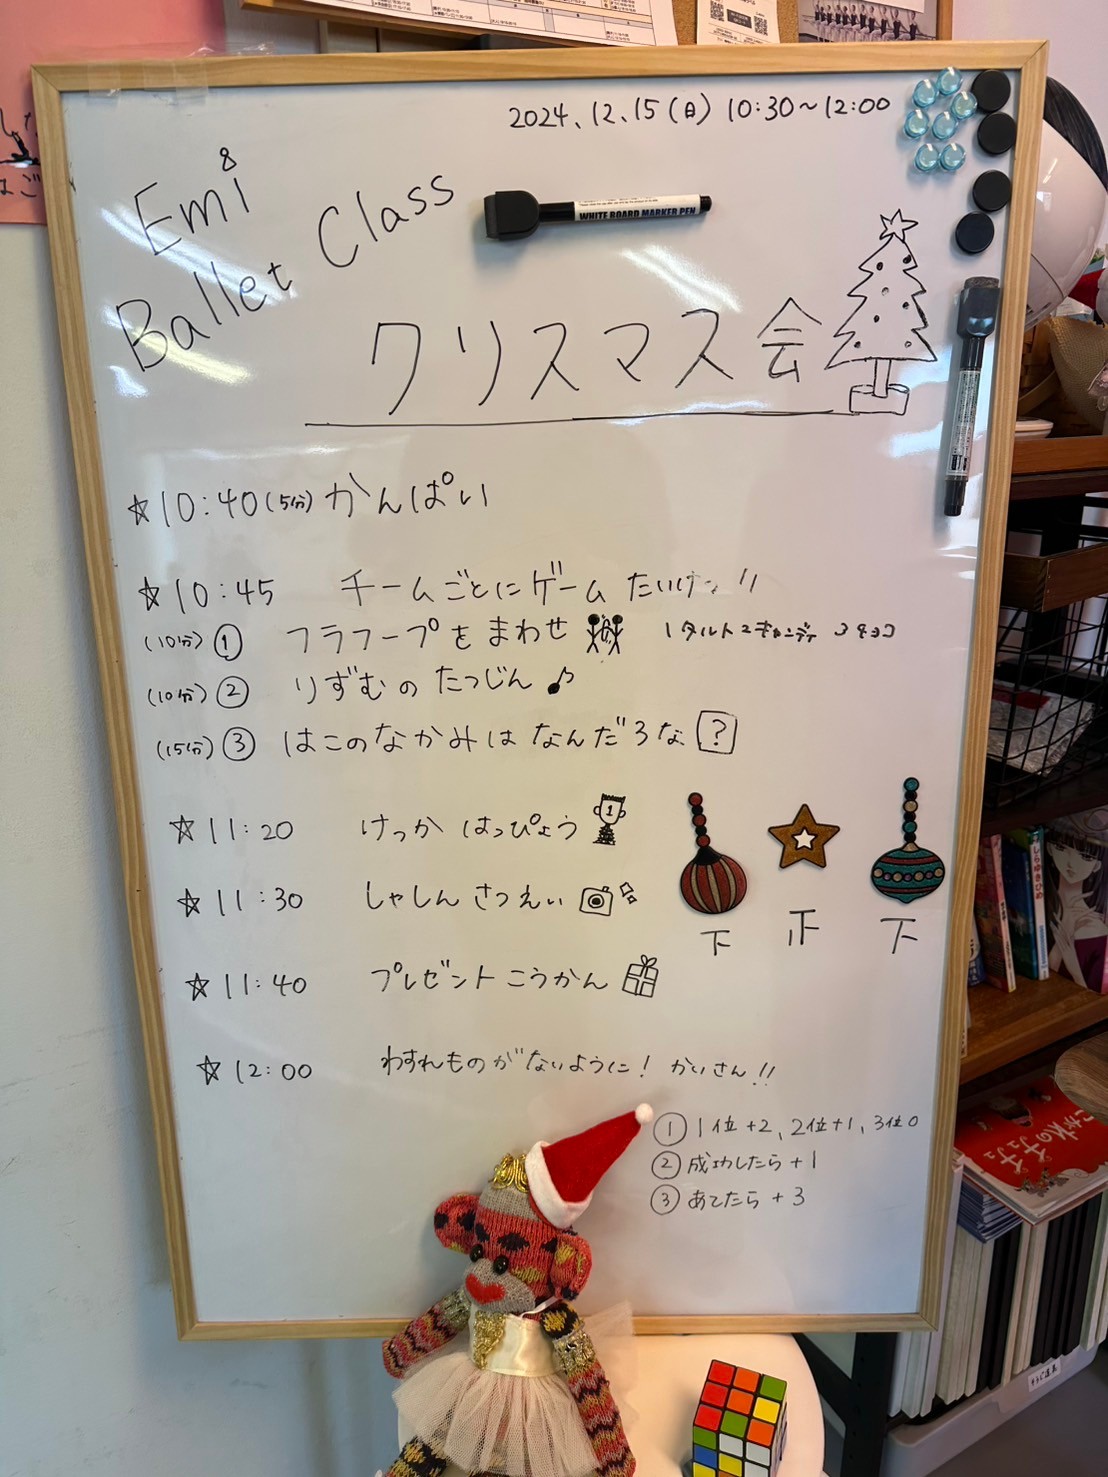 2024.12.15(日) 10:30~12:00
Emi
Ballet Class
WHITE BOARD MARKER PEN
クリスマス会
☆10:40(5分) かんぱい
☆10:45 チームごとにゲームたいけつ!!
(10分) ① フラフープをまわせ 1タルト 2キャンディ 3チョコ
(10分) ② りずむのたつじん♪
(15分) ③ はこのなかみはなんだろな?
☆11:20 けっかはっぴょう 1
☆11:30 しゃしんさつえい
下 正 下
☆11:40 プレゼントこうかん
☆12:00 わすれものがないように! かいさん!!
① 1位+2、2位+1、3位0
② 成功したら+1
③ あてたら+3